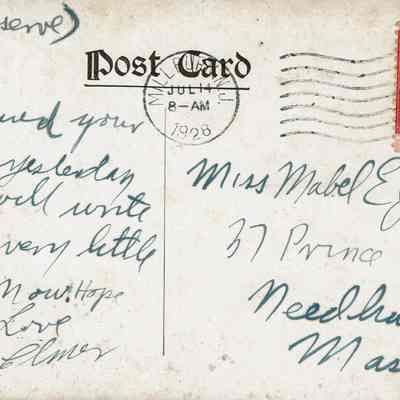 serve)
Post Card
JUL 14
8-AM
1928
your
yesterday
will write
very little
now. Hope
Love
Elmer
Miss Mabel E
37 Prince
Needha
Mas